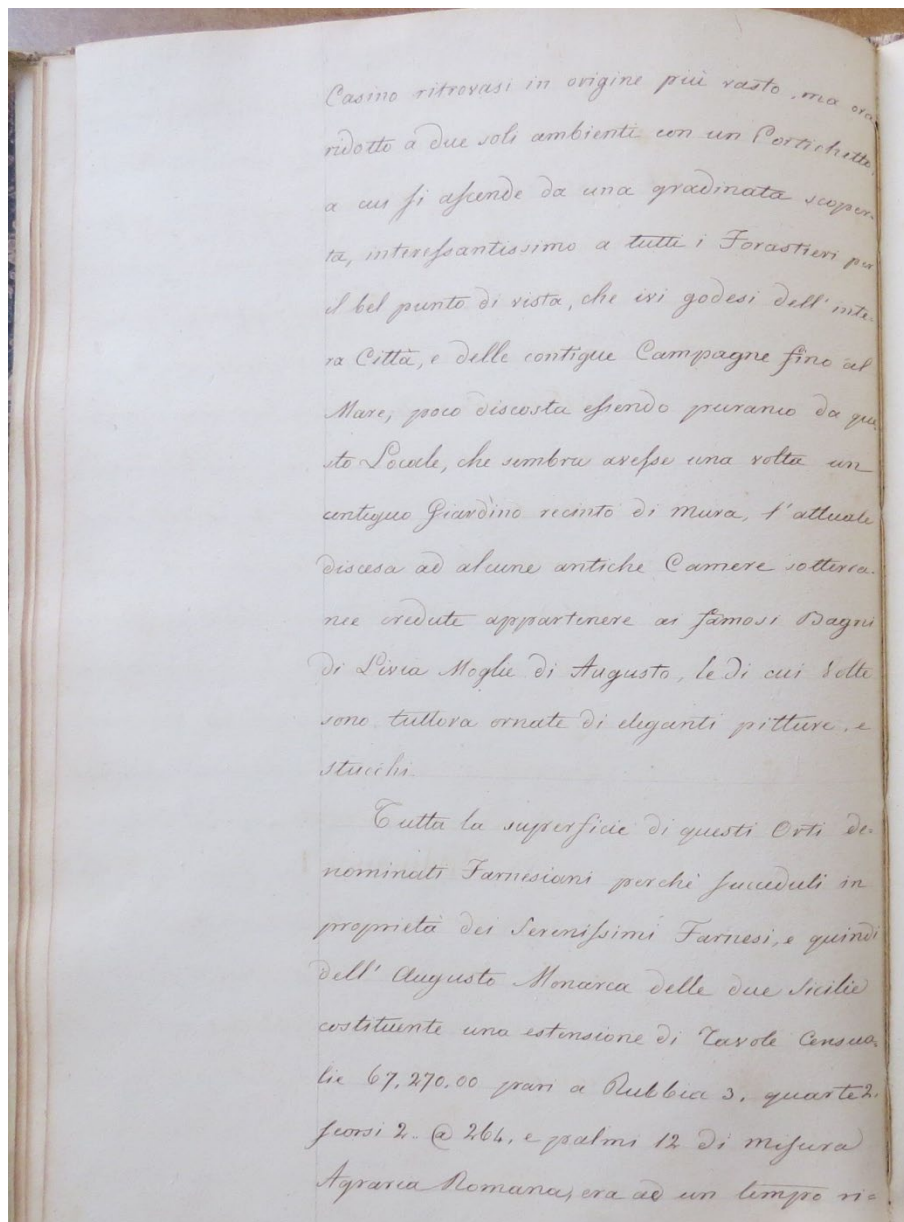 Casino ritrovasi in origine più vasto, ma ora
ridotto a due soli ambienti con un Portichetto,
a cui si ascende da una gradinata scoper=
ta, interessantissimo a tutti i Forastieri per
il bel punto di vista, che ivi godesi dell' inte=
ra Città, e delle contigue Campagne fino al
Mare, poco discosta essendo puranco da que
sto Locale, che sembra avesse una volta un
contiguo Giardino recinto di mura, l'attuale
discesa ad alcune antiche Camere sotterra=
nee credute appartenere ai famosi Bagni
di Livia Moglie di Augusto, le di cui Volte
sono tuttora ornate di eleganti pitture, e
stucchi.
Tutta la superficie di questi Orti de=
nominati Farnesiani perchè succeduti in
proprietà dei Serenissimi Farnesi, e quindi
dell' Augusto Monarca delle due Sicilie
costituente una estensione di Tavole Censua=
lie 67,270.00 pari a Rubbia 3. quarte 2.
scorsi 2. @ 264. e palmi 12 di misura
Agraria Romana, era ad un tempo ri=